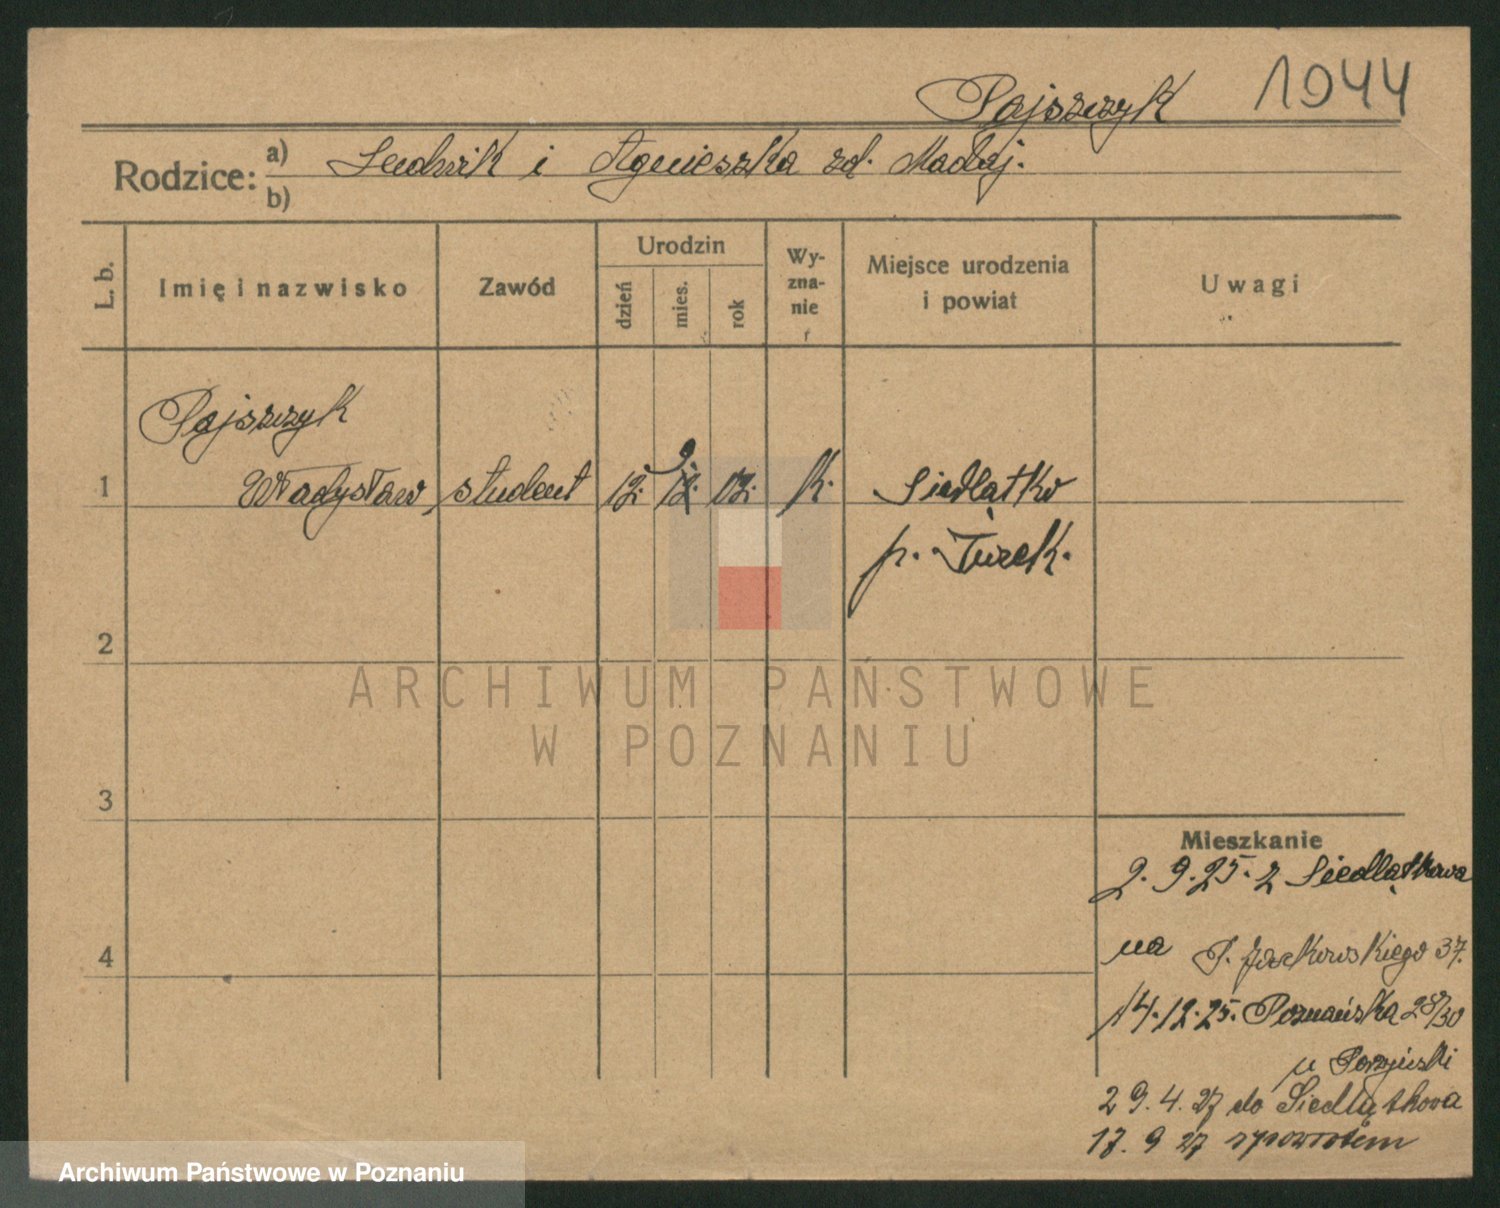 Pajszczyk 1944
Rodzice: a) Ludwik i Agnieszka zd. Maćkaj.
b)
L. b. Imię i nazwisko Zawód Urodzin dzień mies. rok Wyznanie Miejsce urodzenia i powiat Uwagi
Pajszczyk
1 Władysław student 12. 9 02. k. Siedlątko
p. Turek.
2
ARCHIWUM PAŃSTWOWE
W POZNANIU
3
Mieszkanie
2. 9. 25. z Siedlątkowa
4
na P. 37.
14.12.25. Poznańska 28/30
u
29. 4. 27 do Siedlątkowa
17. 9 27 zpowrotem
Archiwum Państwowe w Poznaniu